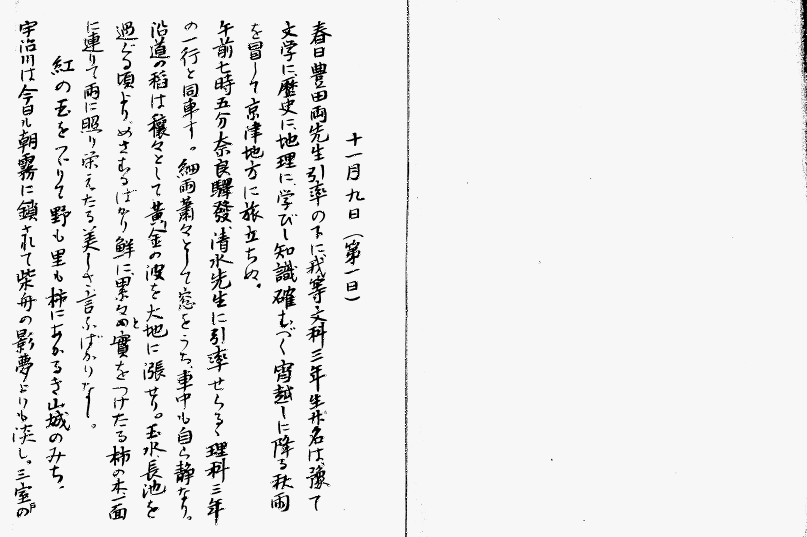 十一月九日（第一日）
春日豊田両先生引率の下に我等文科三年生廿名は、豫て
文学に、歴史に、地理に、学びし知識確むべく宵越しに降る秋雨
を冒して京津地方に旅立ちぬ。
午前七時五分奈良驛發、清水先生に引率せらるゝ理科三年
の一行と同車す。細雨蕭々として窓をうち、車中も自ら静なり。
沿道の稲は穣々として黄金の波を大地に漲せり。玉水、長池を
過ぐる頃よりめさむるばかり鮮に累々と實をつけたる柿の木一面
に連りて雨に照り栄えたる美しさ言ふばかりなし。
紅の玉をつゞりて野も里も柿にあかるき山城のみち。
宇治川は今日ハ朝霧に鎖されて柴舟の影夢よりも淡し。三室の